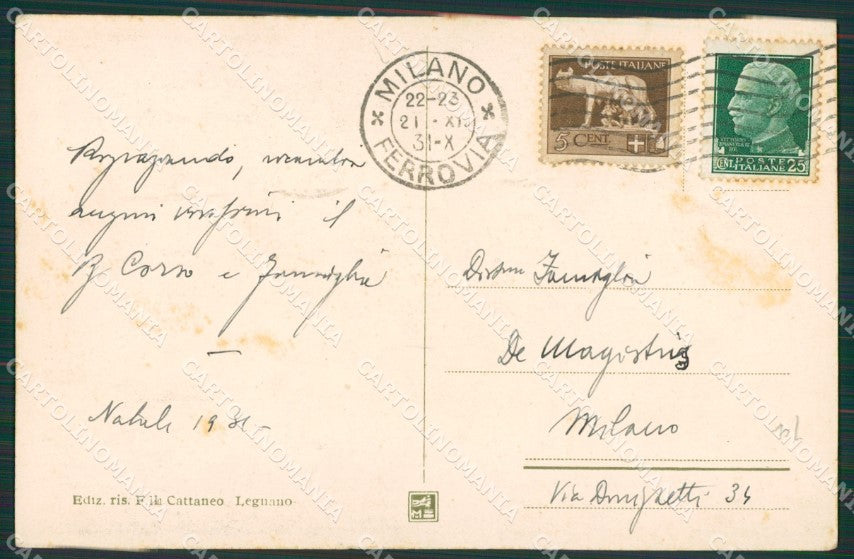 MILANO
22-23
21 - XII
31-X
FERROVIA
POSTE ITALIANE
5 CENT.
CENT. POSTE ITALIANE 25
Ringraziando, ricambia
auguri
Corso e Famiglia
Natale 1931
Famiglia
De Magistris
Milano
Via Donizetti 34
Ediz. ris. F.lli Cattaneo Legnano
CARTOLINOMANIA